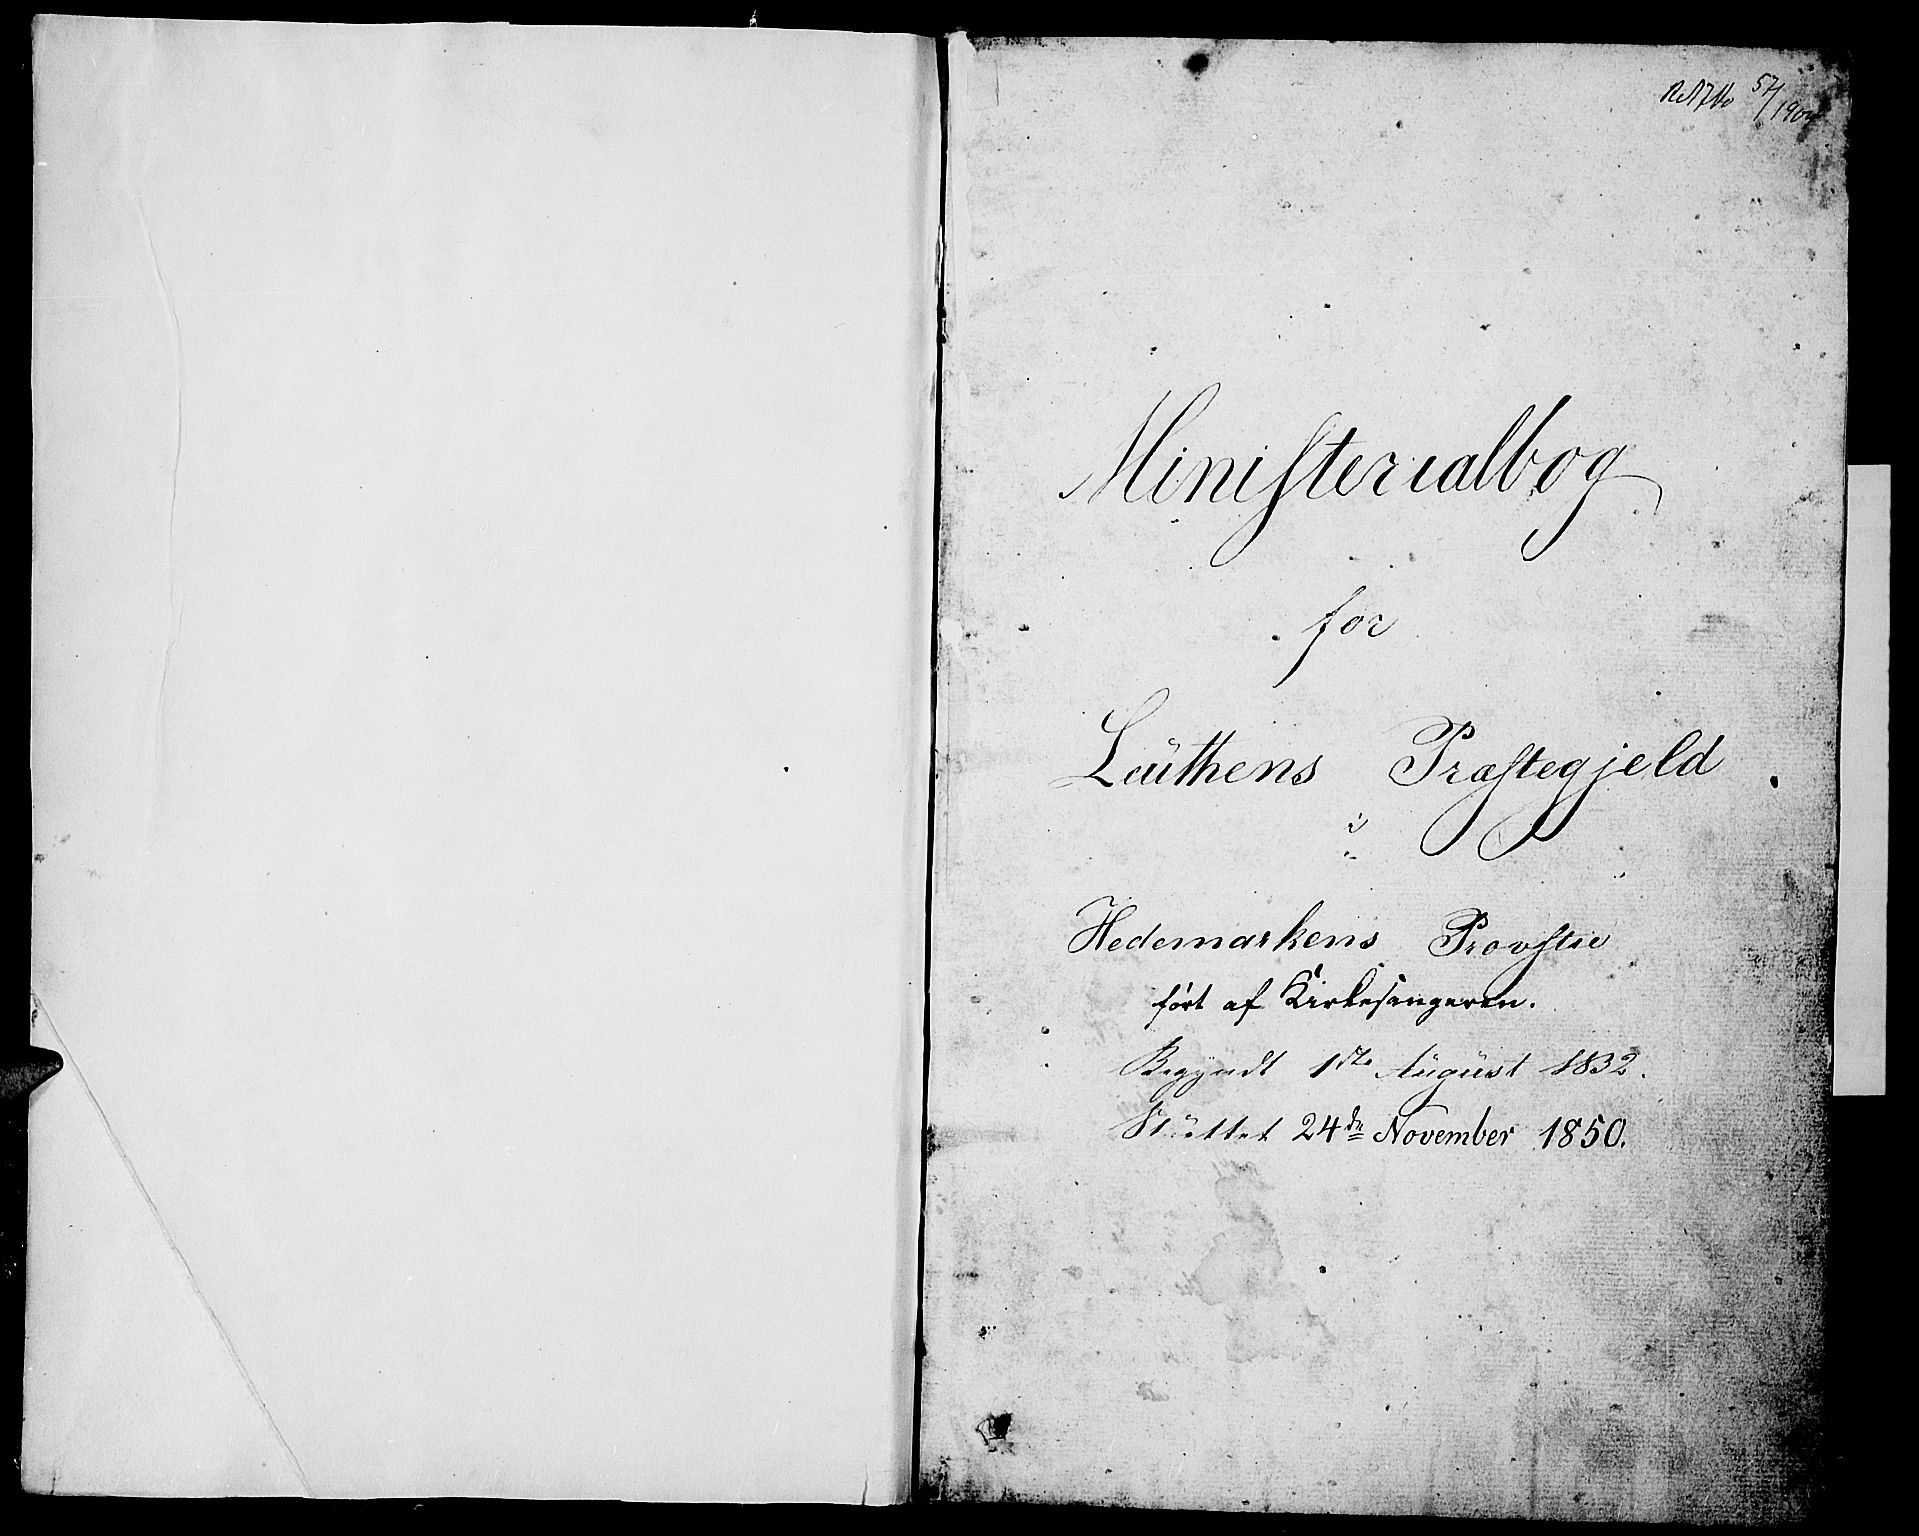 57/1904
Ministerialbog
for
Leuthens Præstegjeld
i
Hedemarkens Provstie
ført af Kirkesangeren.
Begyndt 1ste August 1832.
Sluttet 24de November 1850.